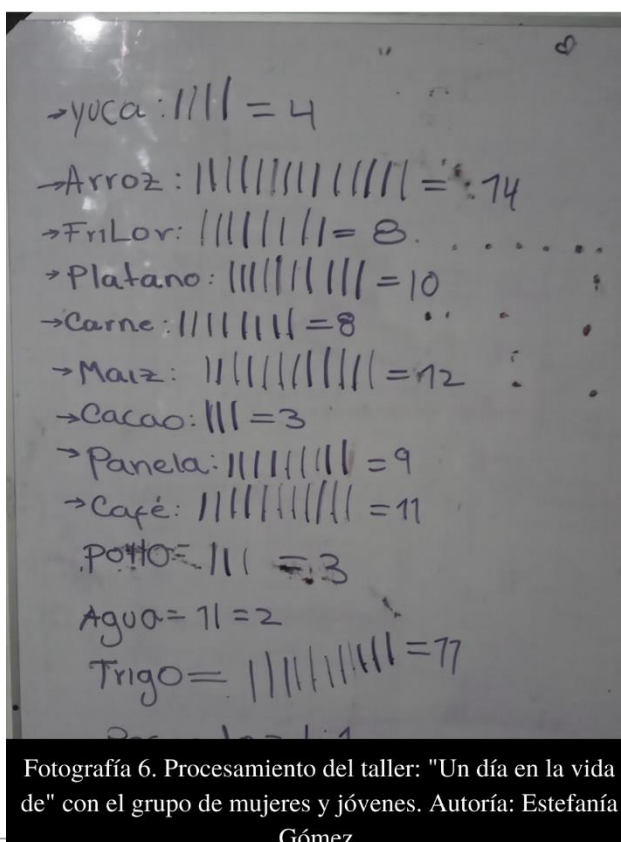 →yuca: |||| = 4
→Arroz: |||||||||||||| = : 14
→FriLor: |||||||| = 8.
→Platano: |||||||||| = 10
→Carne: |||||||| = 8
→Maiz: |||||||||||| = 12
→Cacao: ||| = 3
→Panela: ||||||||| = 9
→Café: ||||||||||| = 11
Pollo= ||| = 3
Agua= || = 2
Trigo= ||||||||||| = 11
Fotografía 6. Procesamiento del taller: "Un día en la vida
de" con el grupo de mujeres y jóvenes. Autoría: Estefanía
Gómez